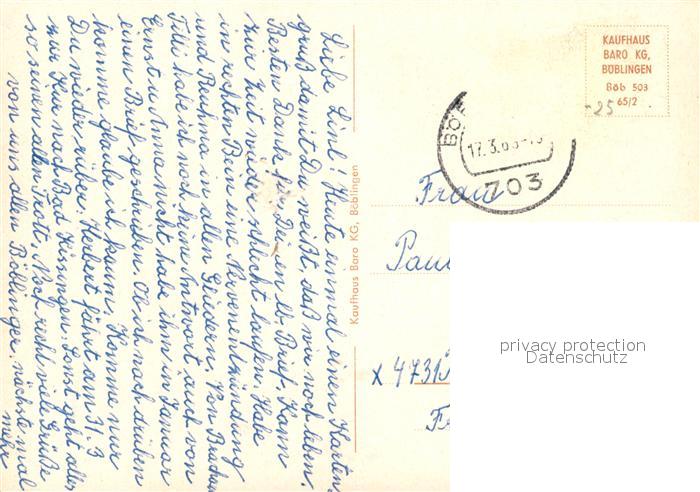 Liebe Linl! Heute einmal einen Karten
gruß damit Du weißt, daß wir noch leben.
Besten Dank für Deinen lb. Brief. Kann
zur Zeit wieder schlecht laufen. Habe
in rechten Bein eine Nervenentzündung
und Rheuma in allen Gliedern. Von
Filli habe ich noch keine Antwort auch von
Ernst u. Anna nicht habe ihm in Januar
einen Brief geschrieben. Ob ich noch drüben
komme glaube ich kaum. Komme nur
Du wieder rüber. Herbert fährt am 31.3
zur Kur nach Bad Kissingen. Sonst geht alles
so seinen alten Trott. Noch recht viele Grüße
von uns allen Böblinger. nächste mal
mehr
Kaufhaus Baro KG, Böblingen
KAUFHAUS
BARO KG,
BÖBLINGEN
Böb 503
65/2
-25
17.3.6
703
Frau
x 4731
privacy protection
Datenschutz